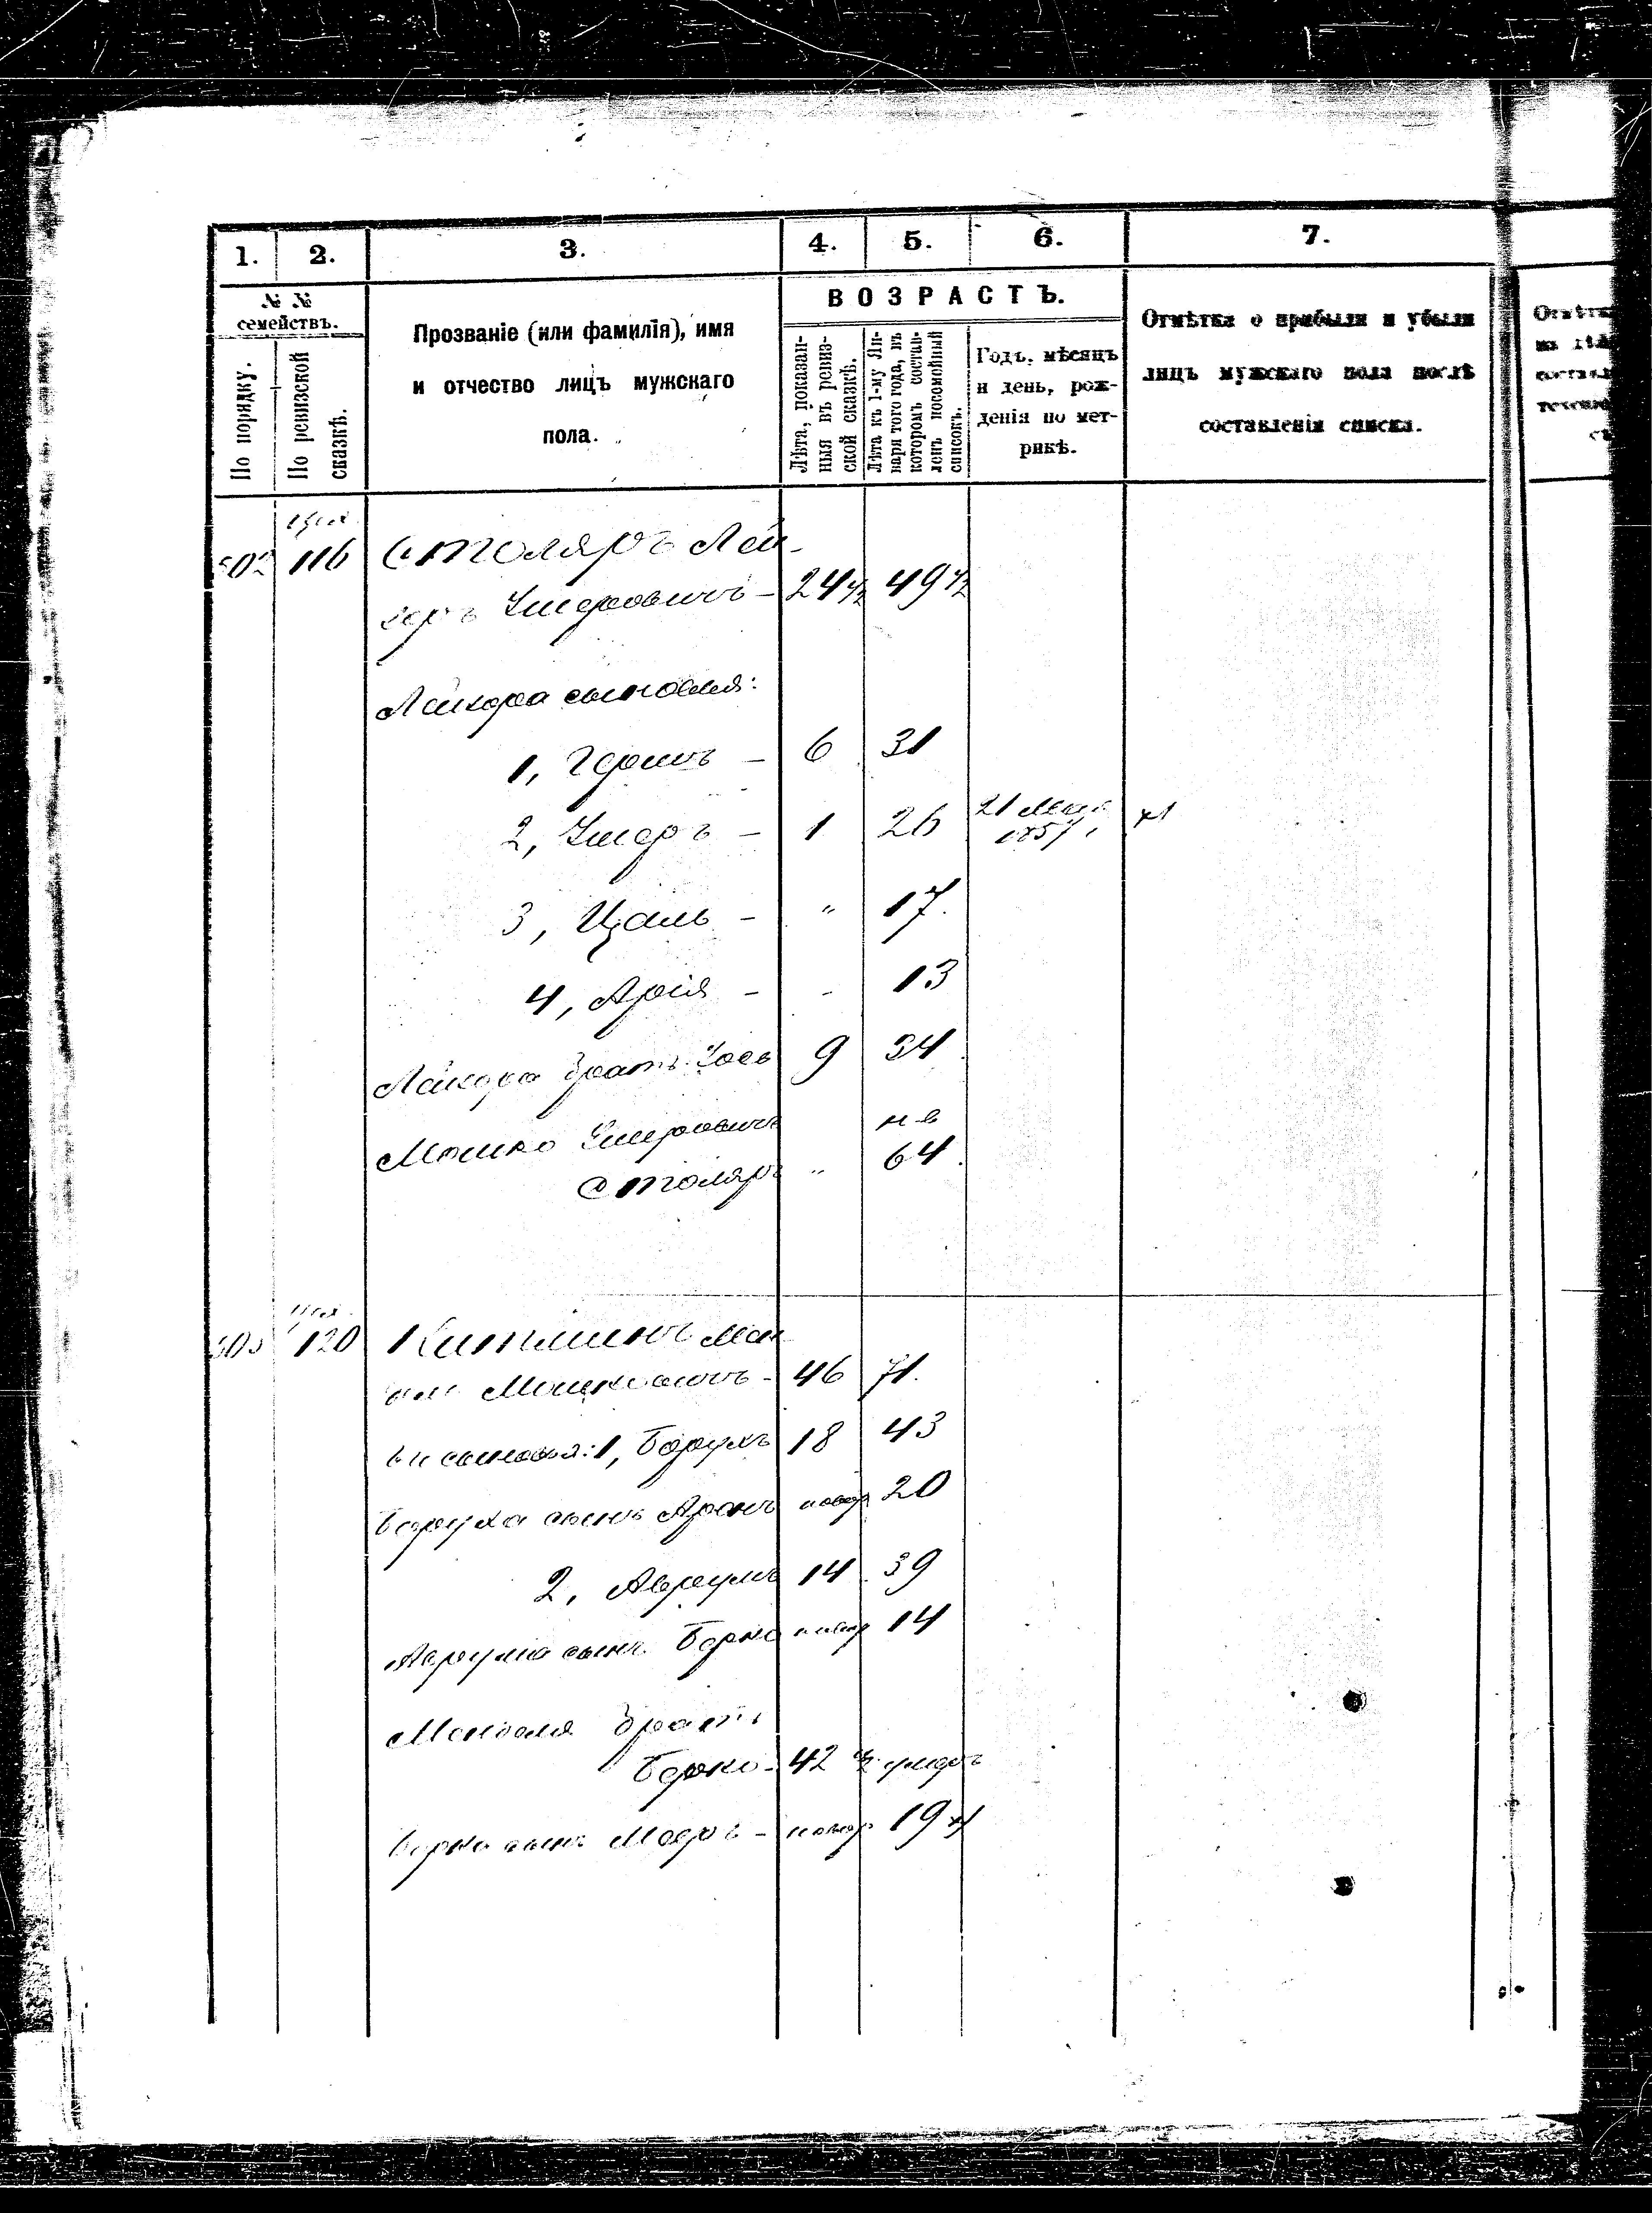 1. 2. 3. 4. 5. 6. 7.
№ №
семействъ.
По порядку.
По ревизской
сказкѣ.
Прозваніе (или фамилія), имя
и отчество лицъ мужскаго
пола.
ВОЗРАСТЪ.
Лѣта, показан-
ныя въ ревиз-
ской сказкѣ.
Лѣта къ 1-му Ян-
варя того года, въ
которомъ состав-
ленъ посемейный
списокъ.
Годъ, мѣсяцъ
и день, рож-
денія по мет-
рикѣ.
Отмѣтка о прибыли и убыли
лицъ мужскаго пола послѣ
составленія списка.
502 116 Столяръ Лей-
зеръ Умеровичъ - 24 1/2 49 1/2
Лейзера сыновья:
1, Гершъ - 6 31
2, Умеръ - 1 26 21 Мая
1857
3, Ицаль - " 17.
4, Арія - - 13
Лейзера братъ Іось 9 34
Мошко Умеровичъ
Столяръ " 64.
120 Китминъ Мен
Мошковичъ - 46 71.
сыновья: 1, Борухъ 18 43
Боруха сынъ Аронъ новор 20
2, Аврумъ 14 39
Аврума сынъ Берко новор 14
Менделя братъ
Берко - 42 умеръ
Берки сынъ Мееръ - новор 19